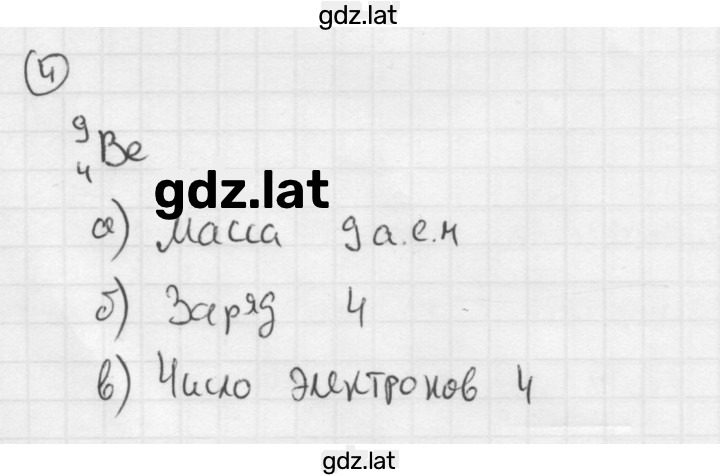 gdz.lat
4
9
4 Be
gdz.lat
а) Масса 9 а.е.м
б) Заряд 4
в) Число электронов 4
gdz.lat